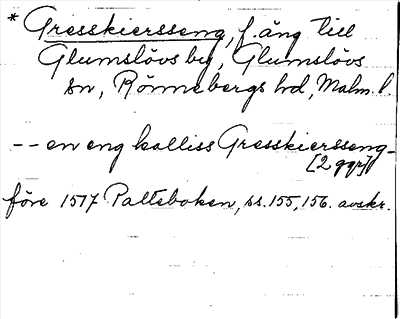 * Gresskiersseng, f. äng till
Glumslövs by, Glumslövs
sn, Rönnebergs hd, Malm. l.
-- en eng kalliss Gresskiersseng-
[2 ggr]
före 1517 Palteboken, ss. 155, 156. avskr.